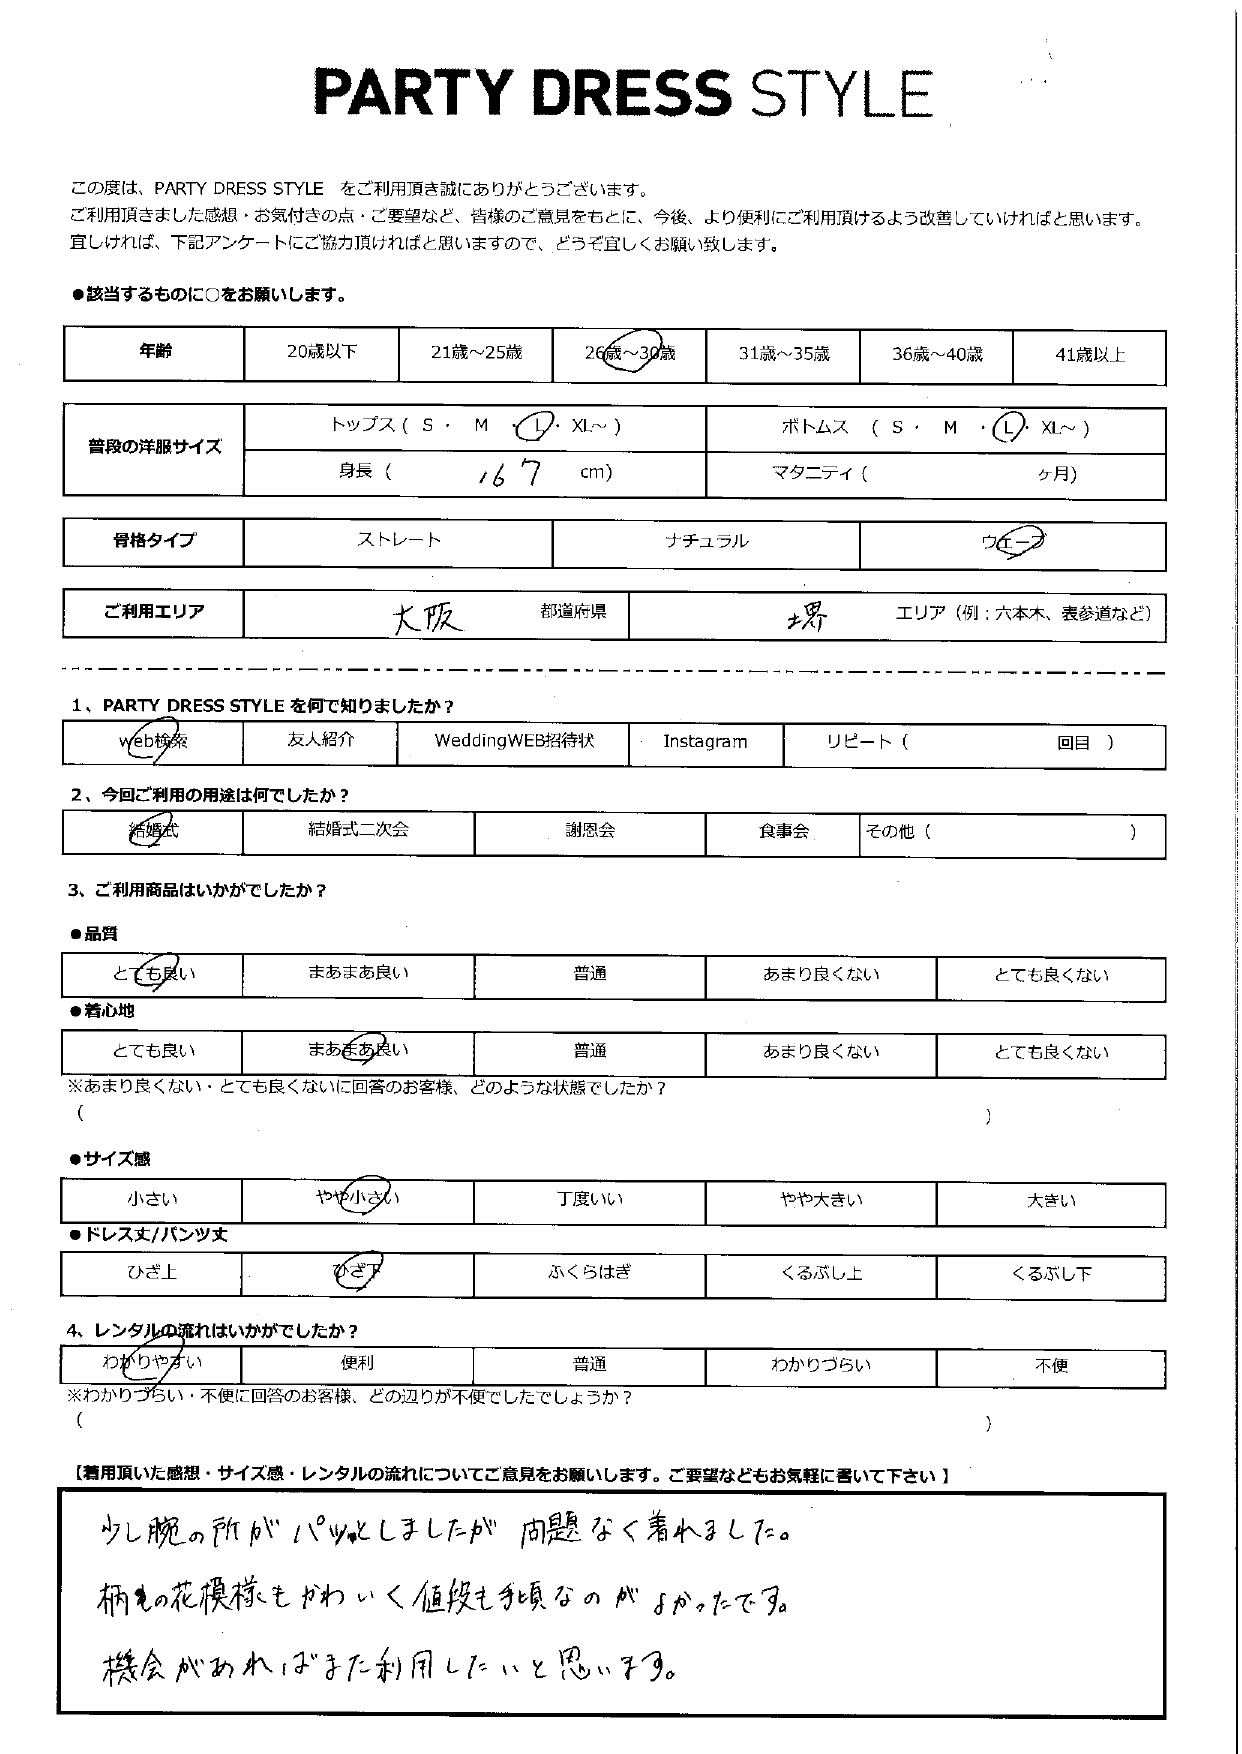 PARTY DRESS STYLE
この度は、PARTY DRESS STYLE　をご利用頂き誠にありがとうございます。
ご利用頂きました感想・お気付きの点・ご要望など、皆様のご意見をもとに、今後、より便利にご利用頂けるよう改善していければと思います。
宜しければ、下記アンケートにご協力頂ければと思いますので、どうぞ宜しくお願い致します。
●該当するものに○をお願いします。
年齢 20歳以下 21歳～25歳 26歳～30歳 31歳～35歳 36歳～40歳 41歳以上
普段の洋服サイズ トップス ( S ・ M ・ L ・ XL～ ) ボトムス ( S ・ M ・ L ・ XL～ )
身長 ( 167 cm) マタニティ ( ヶ月)
骨格タイプ ストレート ナチュラル ウェーブ
ご利用エリア 大阪 都道府県 堺 エリア（例：六本木、表参道など）
1、PARTY DRESS STYLE を何で知りましたか？
web検索 友人紹介 WeddingWEB招待状 Instagram リピート ( 回目 )
2、今回ご利用の用途は何でしたか？
結婚式 結婚式二次会 謝恩会 食事会 その他 ( )
3、ご利用商品はいかがでしたか？
●品質
とても良い まあまあ良い 普通 あまり良くない とても良くない
●着心地
とても良い まあまあ良い 普通 あまり良くない とても良くない
※あまり良くない・とても良くないに回答のお客様、どのような状態でしたか？
( )
●サイズ感
小さい やや小さい 丁度いい やや大きい 大きい
●ドレス丈/パンツ丈
ひざ上 ひざ下 ふくらはぎ くるぶし上 くるぶし下
4、レンタルの流れはいかがでしたか？
わかりやすい 便利 普通 わかりづらい 不便
※わかりづらい・不便に回答のお客様、どの辺りが不便でしたでしょうか？
( )
【着用頂いた感想・サイズ感・レンタルの流れについてご意見をお願いします。ご要望などもお気軽に書いて下さい 】
少し腕の所がパツっとしましたが 問題なく着れました。
柄の花模様もかわいく値段も手頃なのがよかったです。
機会があればまた利用したいと思います。